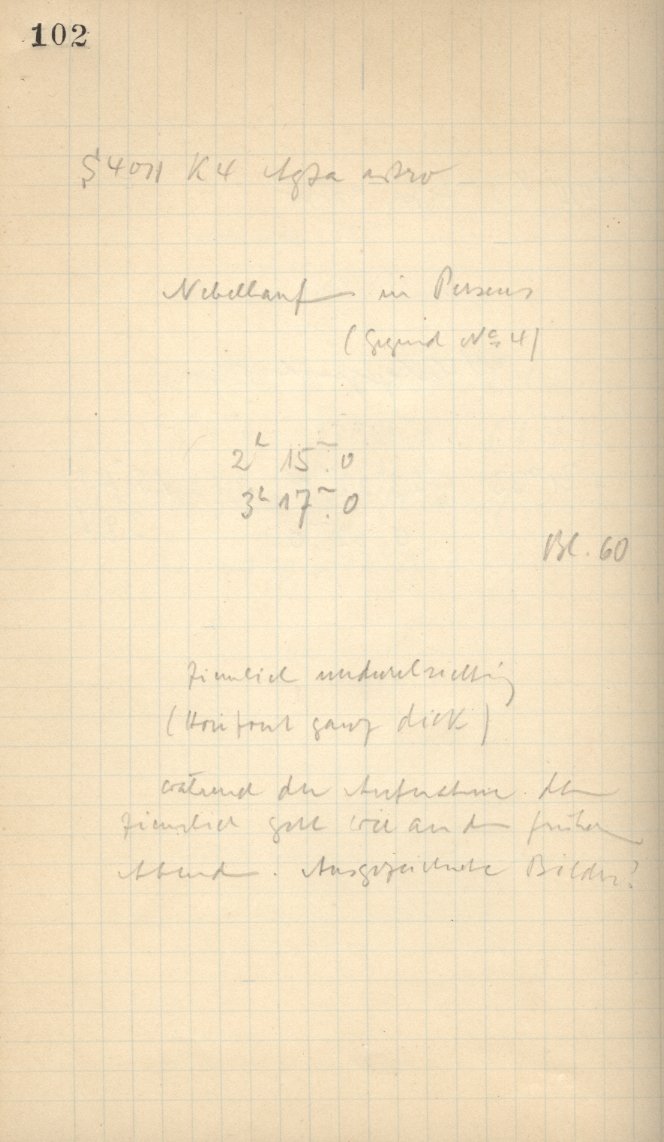 102
K4 Agfa astro
Nebellauf in Perseus
(Gegend No 4)
2h 15m.0
3h 17m.0
Bl. 60
Ziemlich undurchsichtig
(Horizont ganz dick)
während der Aufnahme
ziemlich wie an
Abend. Ausgezeichnete Bilder!